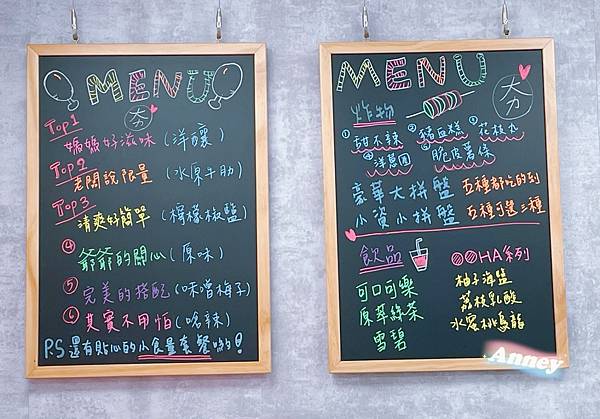 MENU
夯
Top1
媽媽好滋味(洋釀)
Top2
老闆說限量(水原牛肋)
Top3
清爽好簡單(檸檬椒鹽)
④爺爺的關心(原味)
⑤完美的搭配(味噌梅子)
⑥其實不用怕(嗆辣)
P.S 還有貼心的小食量套餐喲!
MENU
夯
炸物
①甜不辣 ②豬血糕 ③花枝丸
④洋蔥圈 ⑤脆皮薯條
豪華大拼盤 五種都吃的到
小資小拼盤 五種可選三種
飲品
可口可樂
原萃綠茶
雪碧
HA系列
柚子海鹽
荔枝乳酸
水蜜桃烏龍
Anney